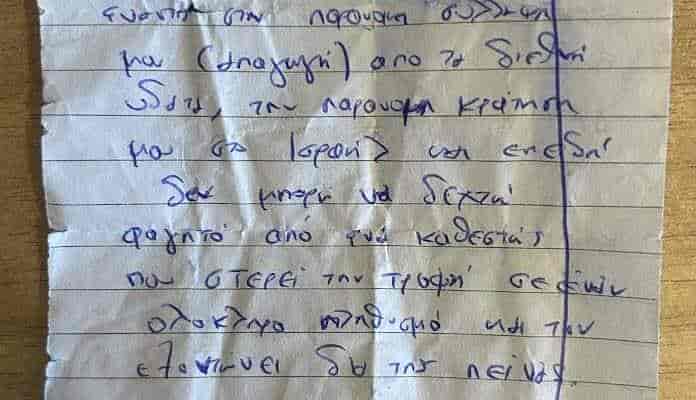 εναντια στην παρουσα σύλληψη
μου (απαγωγή) από τα διεθνή
ύδατα, την παρουσα κράτηση
μου στο Ισραήλ και επειδή
δεν μπορώ να δεχτώ
φαγητό από ένα καθεστώς
που στερεί την τροφή σε έναν
ολοκληρο πληθυσμό και τον
εξοντώνει δια της πείνας.